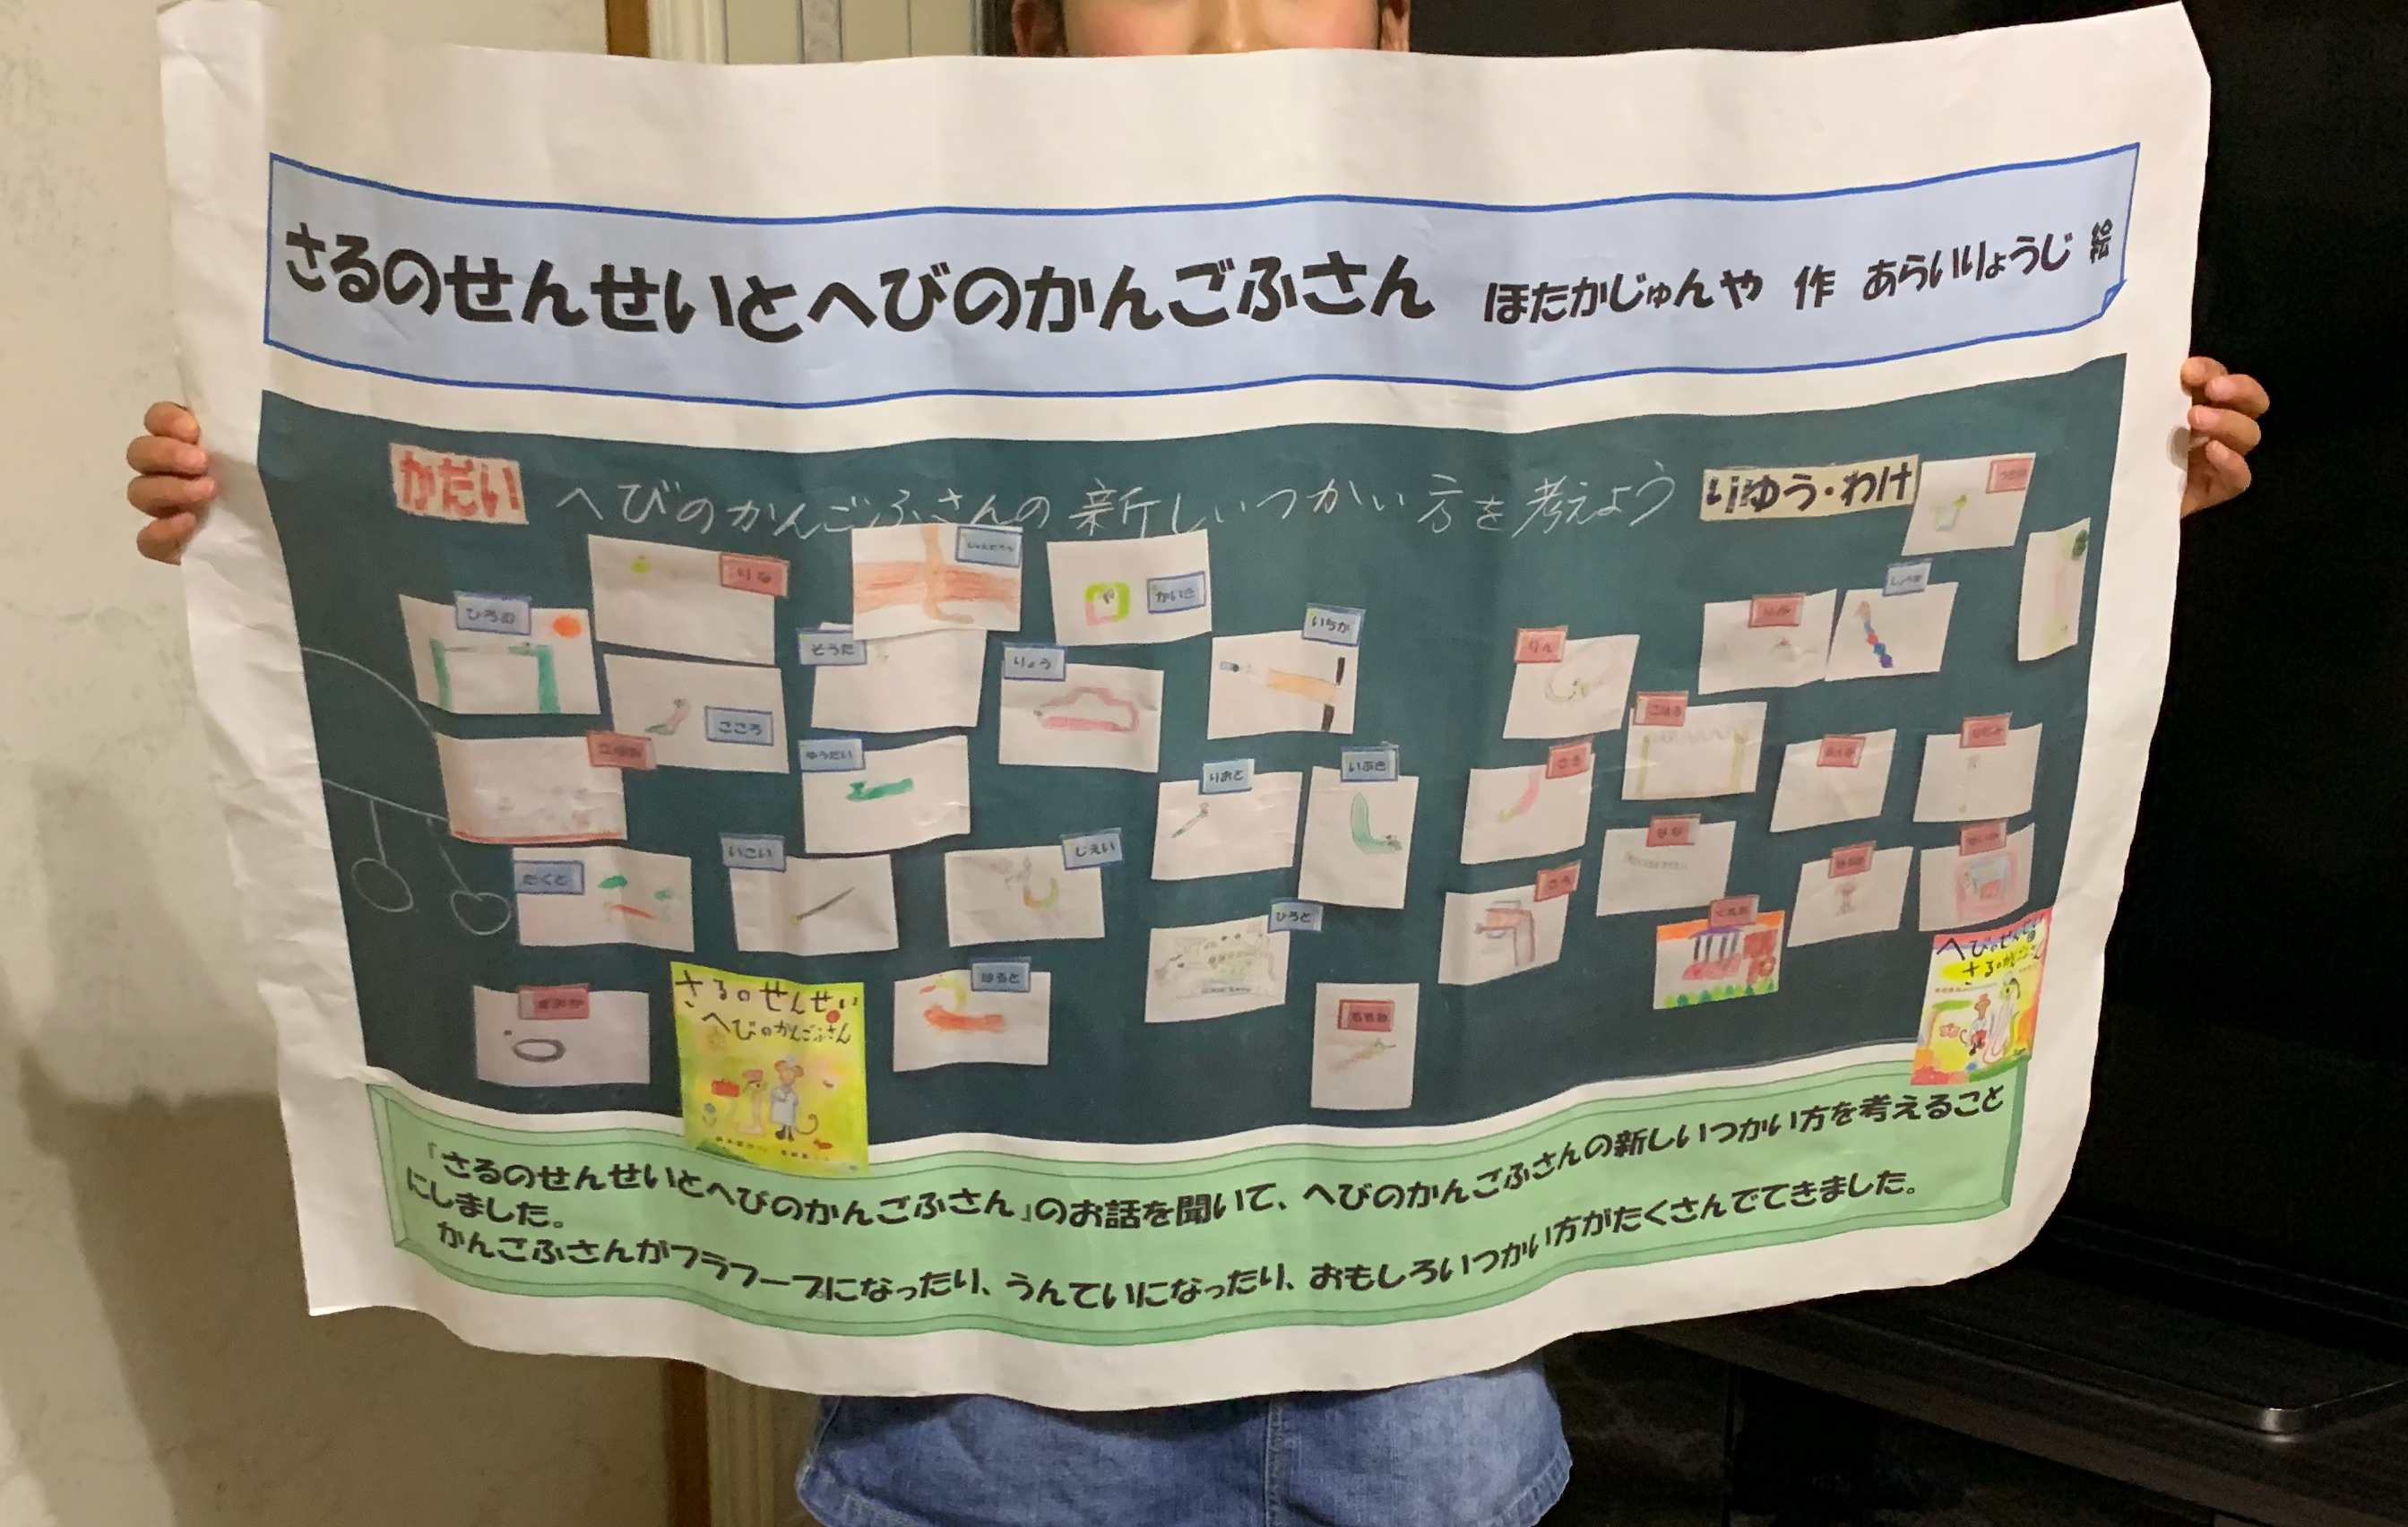 さるのせんせいとへびのかんごふさん ほたかじゅんや 作 あらいりょうじ 絵
かだい へびのかんごふさんの新しいつかい方を考えよう りゆう・わけ
りな
かいき
ひろむ
そうた
りょう
いちか
りん
こころ
ゆうだい
りおと
いぶき
こはる
たくと
いこい
じぇい
ひろと
はると
さるのせんせい
へびのかんごふさん
へびのせんせい
さるのかんごふさん
「さるのせんせいとへびのかんごふさん」のお話を聞いて、へびのかんごふさんの新しいつかい方を考えること
にしました。
かんごふさんがフラフープになったり、うんていになったり、おもしろいつかい方がたくさんでてきました。